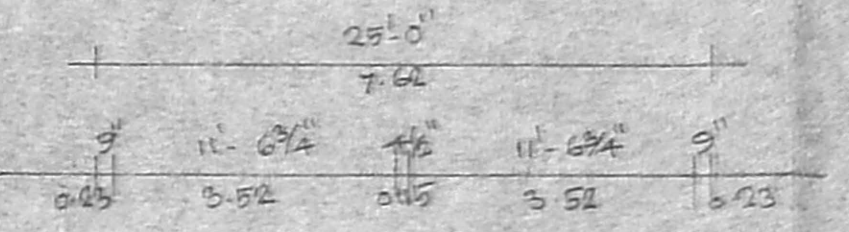 25'-0"
7.62
9" 11'-6 3/4" 4 1/2" 11'-6 3/4" 9"
0.23 3.52 0.115 3.52 0.23